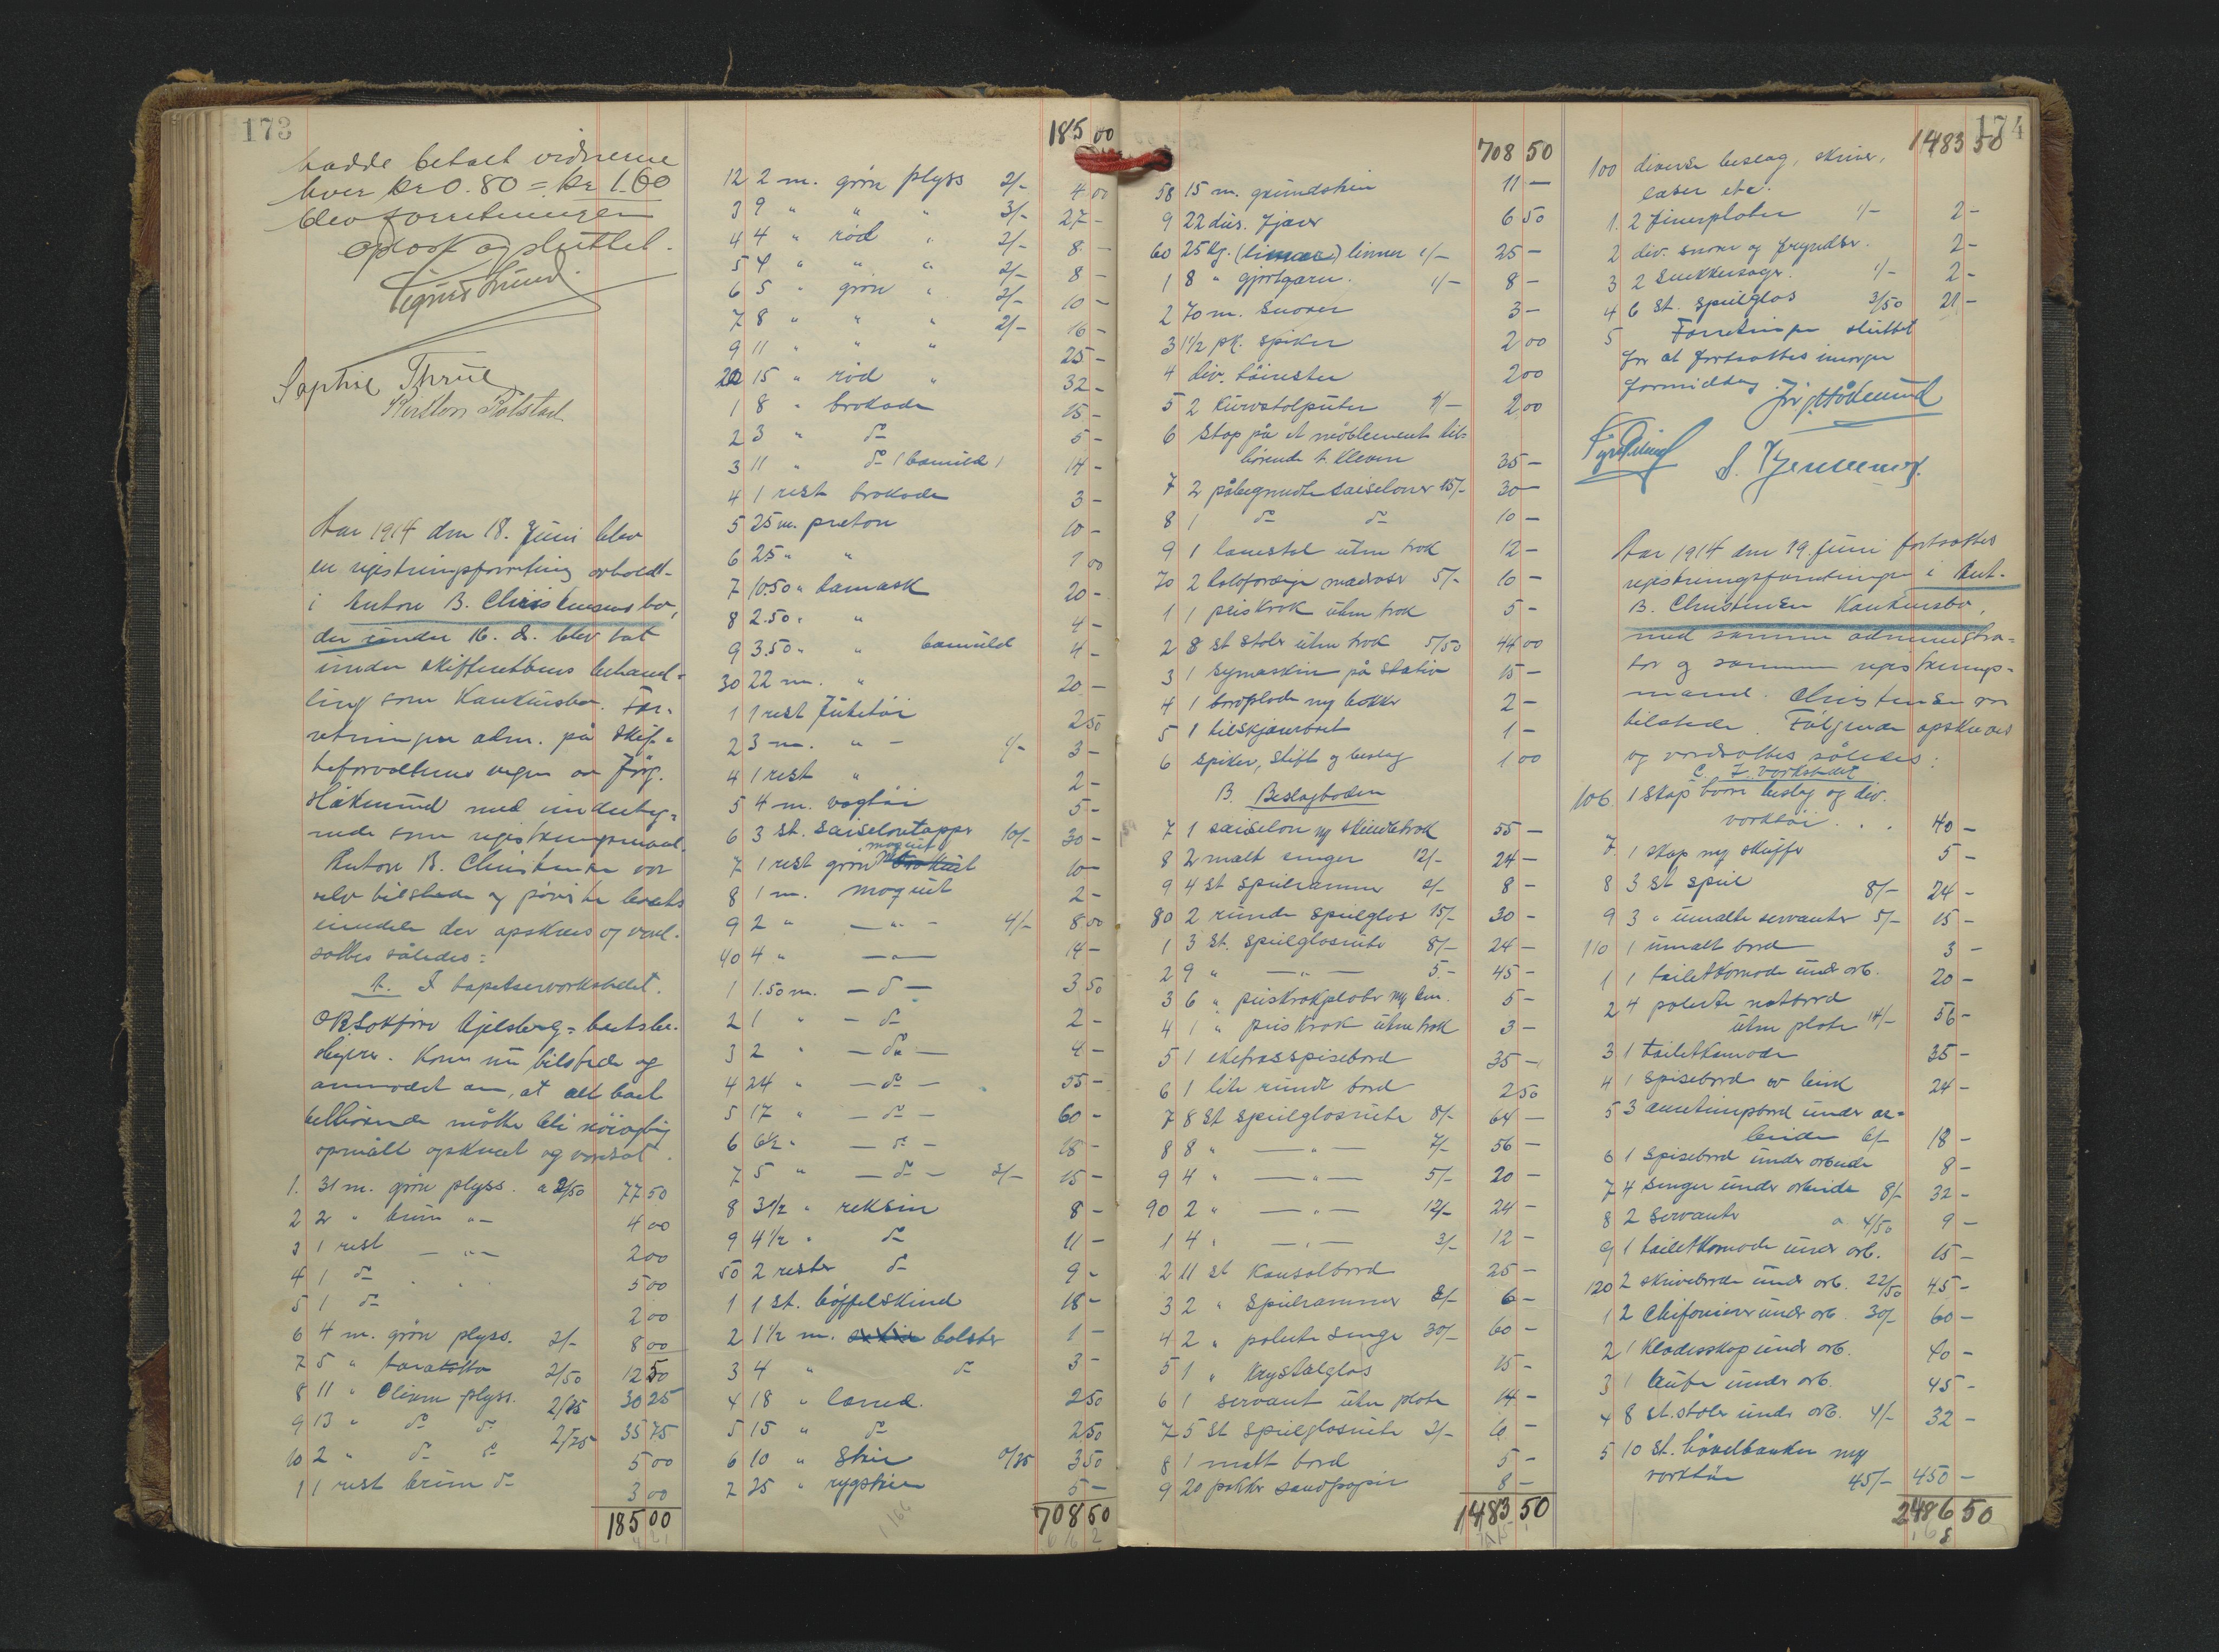 173
hadde betalt vidnerne
hver kr 0.80 = kr 1.60
blev forretningen
oplæst og sluttet.
Sigurd Lund
Thrue
Aar 1914 den 18. Juni blev
en registreringsforretning avholdt
i Anton B. Christensens bo,
der under 16. ds. blev tat
under skifterettens behand-
ling som konkursbo. For-
retningen adm. på skif-
teforvalterens vegne av Jørg.
Håkmund med underteg-
nede som registreringsmand.
Anton B. Christensen var
selv tilstede og påviste boets
eiendele der opskrevs og verd-
sattes således:
A. I tapetserverkstedet.
O.R.Sakfører Kjelsberg = bests.be-
styrer. Kom nu tilstede og
anmodet om, at alt boet
tilhørende måtte bli nøiagtig
opmålt opskrevet og verdsat.
1. 31 m. grøn plyss. a 2/50 77 50
2 2 " brun " 4 00
3 1 rest — " — 2 00
4 1 do " " 5 00
5 1 do 2 00
6 4 m. grøn plyss. 2/- 8 00
7 5 " 2/50 12 50
8 11 " Oliven plyss. 2/75 30 25
9 13 " do do 2/75 35 75
10 2 " do do 5 00
1 1 rest brun do 3 00
185 00
185 00
12 2 m. grøn plyss 2/- 4 00
3 9 " " " 3/- 27 -
4 4 " rød " 2/- 8 -
5 4 " " " 2/- 8 -
6 5 " grøn " 2/- 10 -
7 8 " " " 2/- 16 -
9 11 " " " 25 -
20 15 " rød " 32 -
1 8 " brokade 15 -
2 3 " do 5 -
3 11 " do (bomuld) 14 -
4 1 rest brokade 3 -
5 25 m. 10 -
6 25 " " 1 00
7 10.50 " damask 20 -
8 2.50 " " 4 -
9 3.50 " " bomuld 4 -
30 22 m. " 20 -
1 1 rest Jutetøi 2 50
2 3 m. " - 1/- 3 -
4 1 rest " 2 -
5 4 m. vogtøi 5 -
6 3 st. saiselontepper 10/- 30 -
7 1 rest grøn moquet 10 -
8 1 m. moquet 2 -
9 2 " — " — 4/- 8 00
40 4 " — " — 14 -
1 1.50 m. — do — 3 50
2 1 " — do 2 -
3 2 " — do — 4 -
4 24 " — do — 55 -
5 17 " — do — 60 -
6 6½ " — do — 18 -
7 5 " — do — 3/- 15 -
8 3½ " reksin 8 -
9 4½ " do 11 -
50 2 rester do 9 -
1 1 st. bøffelskind 18 -
2 1½ m. bolster 1 -
3 4 " do 3 -
4 18 " lærred. 2 50
5 15 " do 2 50
6 10 " Strie 0/35 3 50
7 25 " rygstrie 5 -
708 50
174
708 50
58 15 m. grundstrie 11 -
9 22 dus. fjærer 6 50
60 25 kg. linner 1/- 25 -
1 8 " gjortgarn. 1/- 8 -
2 70 m. Snorer 3 -
3 1½ pk. spiker 2 00
4 div. tøirester 2 00
5 2 kurvstolputer 1/- 2 00
6 Stop på et møblement til-
hørende H. Kleven 35 -
7 2 påbegyndte saiseloner 15/- 30 -
8 1 do do 10 -
9 1 lænestol uten trek 12 -
70 2 madraser 5/- 10 -
1 1 peiskrok uten trek 5 -
2 8 st stoler uten trek 5/50 44 00
3 1 symaskin på stativ 15 -
4 1 bordplade og bokker 2 -
5 1 tilskjærerbret 1 -
6 Spiker, stift og beslag 1 00
B. Beslagboden
7 1 saiselon og skindtrek 55 -
8 2 malt senger 12/- 24 -
9 4 st speilrammer 2/- 8 -
80 2 runde speilglas 15/- 30 -
1 3 st. speilglasrute 8/- 24 -
2 9 " — " — 5.- 45 -
3 6 " peiskrokplater 5 -
4 1 " peiskrok uten trek 3 -
5 1 ekefræsspisebord 35 -
6 1 lite rundt bord 2 50
7 8 st speilglasrute 8/- 64 -
8 8 " — " — 7/- 56 -
9 4 " — " — 5/- 20 -
90 2 " — " — 12/- 24 -
1 4 " — " — 3/- 12 -
2 11 st Konsolbord 25 -
3 2 " Speilrammer 3/- 6 -
4 2 " polerte senge 30/- 60 -
5 1 " Krystalglas 15 -
6 1 servant uten plate 14 -
7 5 st speilglasrute 2/- 10 -
8 1 malt bord 5 -
9 20 pakker sandpapir 8 -
1483 50
1483 50
100 diverse beslag, skruer,
laser etc.
1. 2 finerplater 1/- 2 -
2 div. snorer og fryndser. 2 -
3 2 Snekkersager. 1/- 2 -
4 6 st. speilglas 3/50 21 -
5 Forretningen sluttet
for at fortsættes imorgen
formiddag. Jørg. Håkmund
Aar 1914 den 19. juni fortsattes
registreringsforretningen i Ant.
B. Christensen Konkursbo,
med samme administra-
tor og samme registrerings-
mand. Christensen var
tilstede. Følgende opskreves
og verdsattes således:
C. I verkstedet
106. 1 skap hvori beslag og div.
verktøi . . . 40 -
7 1 skap og skuffer 5 -
8 3 st speil 8/- 24 -
9 3 " umalte servanter 5/- 15 -
110 1 umalt bord 3 -
1 1 toiletkomode under arb. 20 -
2 4 polerte natbord
uten plate 14/- 56 -
3 1 toiletkomode 35 -
4 1 spisebord av birk 24 -
5 3 anretningsbord under ar-
beide 6/- 18 -
6 1 Spisebord under arbeide 8 -
7 4 senger under arbeide 8/- 32 -
8 2 servanter a 4/50 9 -
9 1 toiletkomode under arb. 15 -
120 2 skrivebord under arb. 22/50 45 -
1 2 Chifonierer under arb. 30/- 60 -
2 1 klædesskap under arb. 40 -
3 1 bufet under arb. 45 -
4 8 st. stoler under arb. 4/- 32 -
5 10 st. høvelbænker og
verktøi 45/- 450 -
2486 50